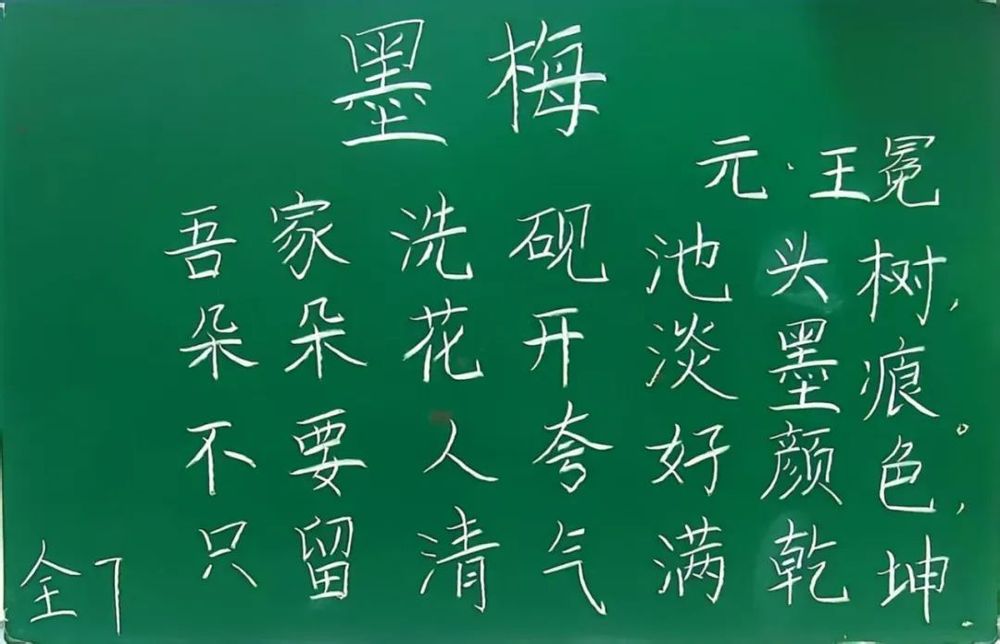 墨梅
元·王冕
吾家洗砚池头树，
朵朵花开淡墨痕。
不要人夸好颜色，
只留清气满乾坤